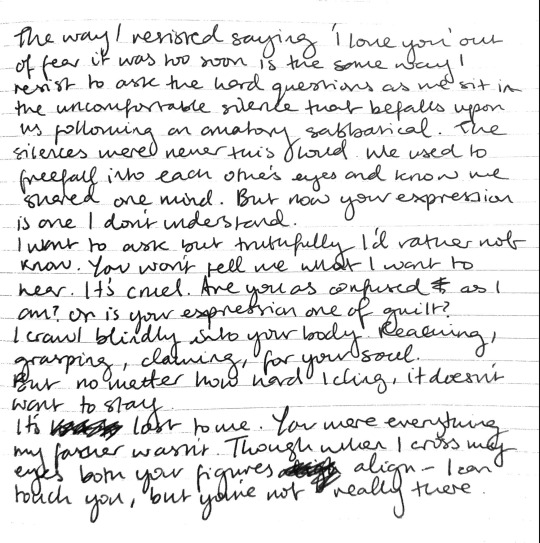 The way I resisted saying 'I love you' out
of fear it was too soon is the same way I
resist to ask the hard questions as we sit in
the uncomfortable silence that befalls upon
us following an amatory sabbatical. The
silences were never this loud. We used to
freefall into each other's eyes and know we
shared one mind. But now your expression
is one I don't understand.
I want to ask but truthfully I'd rather not
know. You won't tell me what I want to
hear. It's cruel. Are you as confused as I
am? Or is your expression one of guilt?
I crawl blindly into your body. Reaching,
grasping, clawing, for your soul.
But no matter how hard I cling, it doesn't
want to stay.
It's lost to me. You were everything
my father wasn't. Though when I cross my
eyes both your figures align – I can
touch you, but you're not really there.